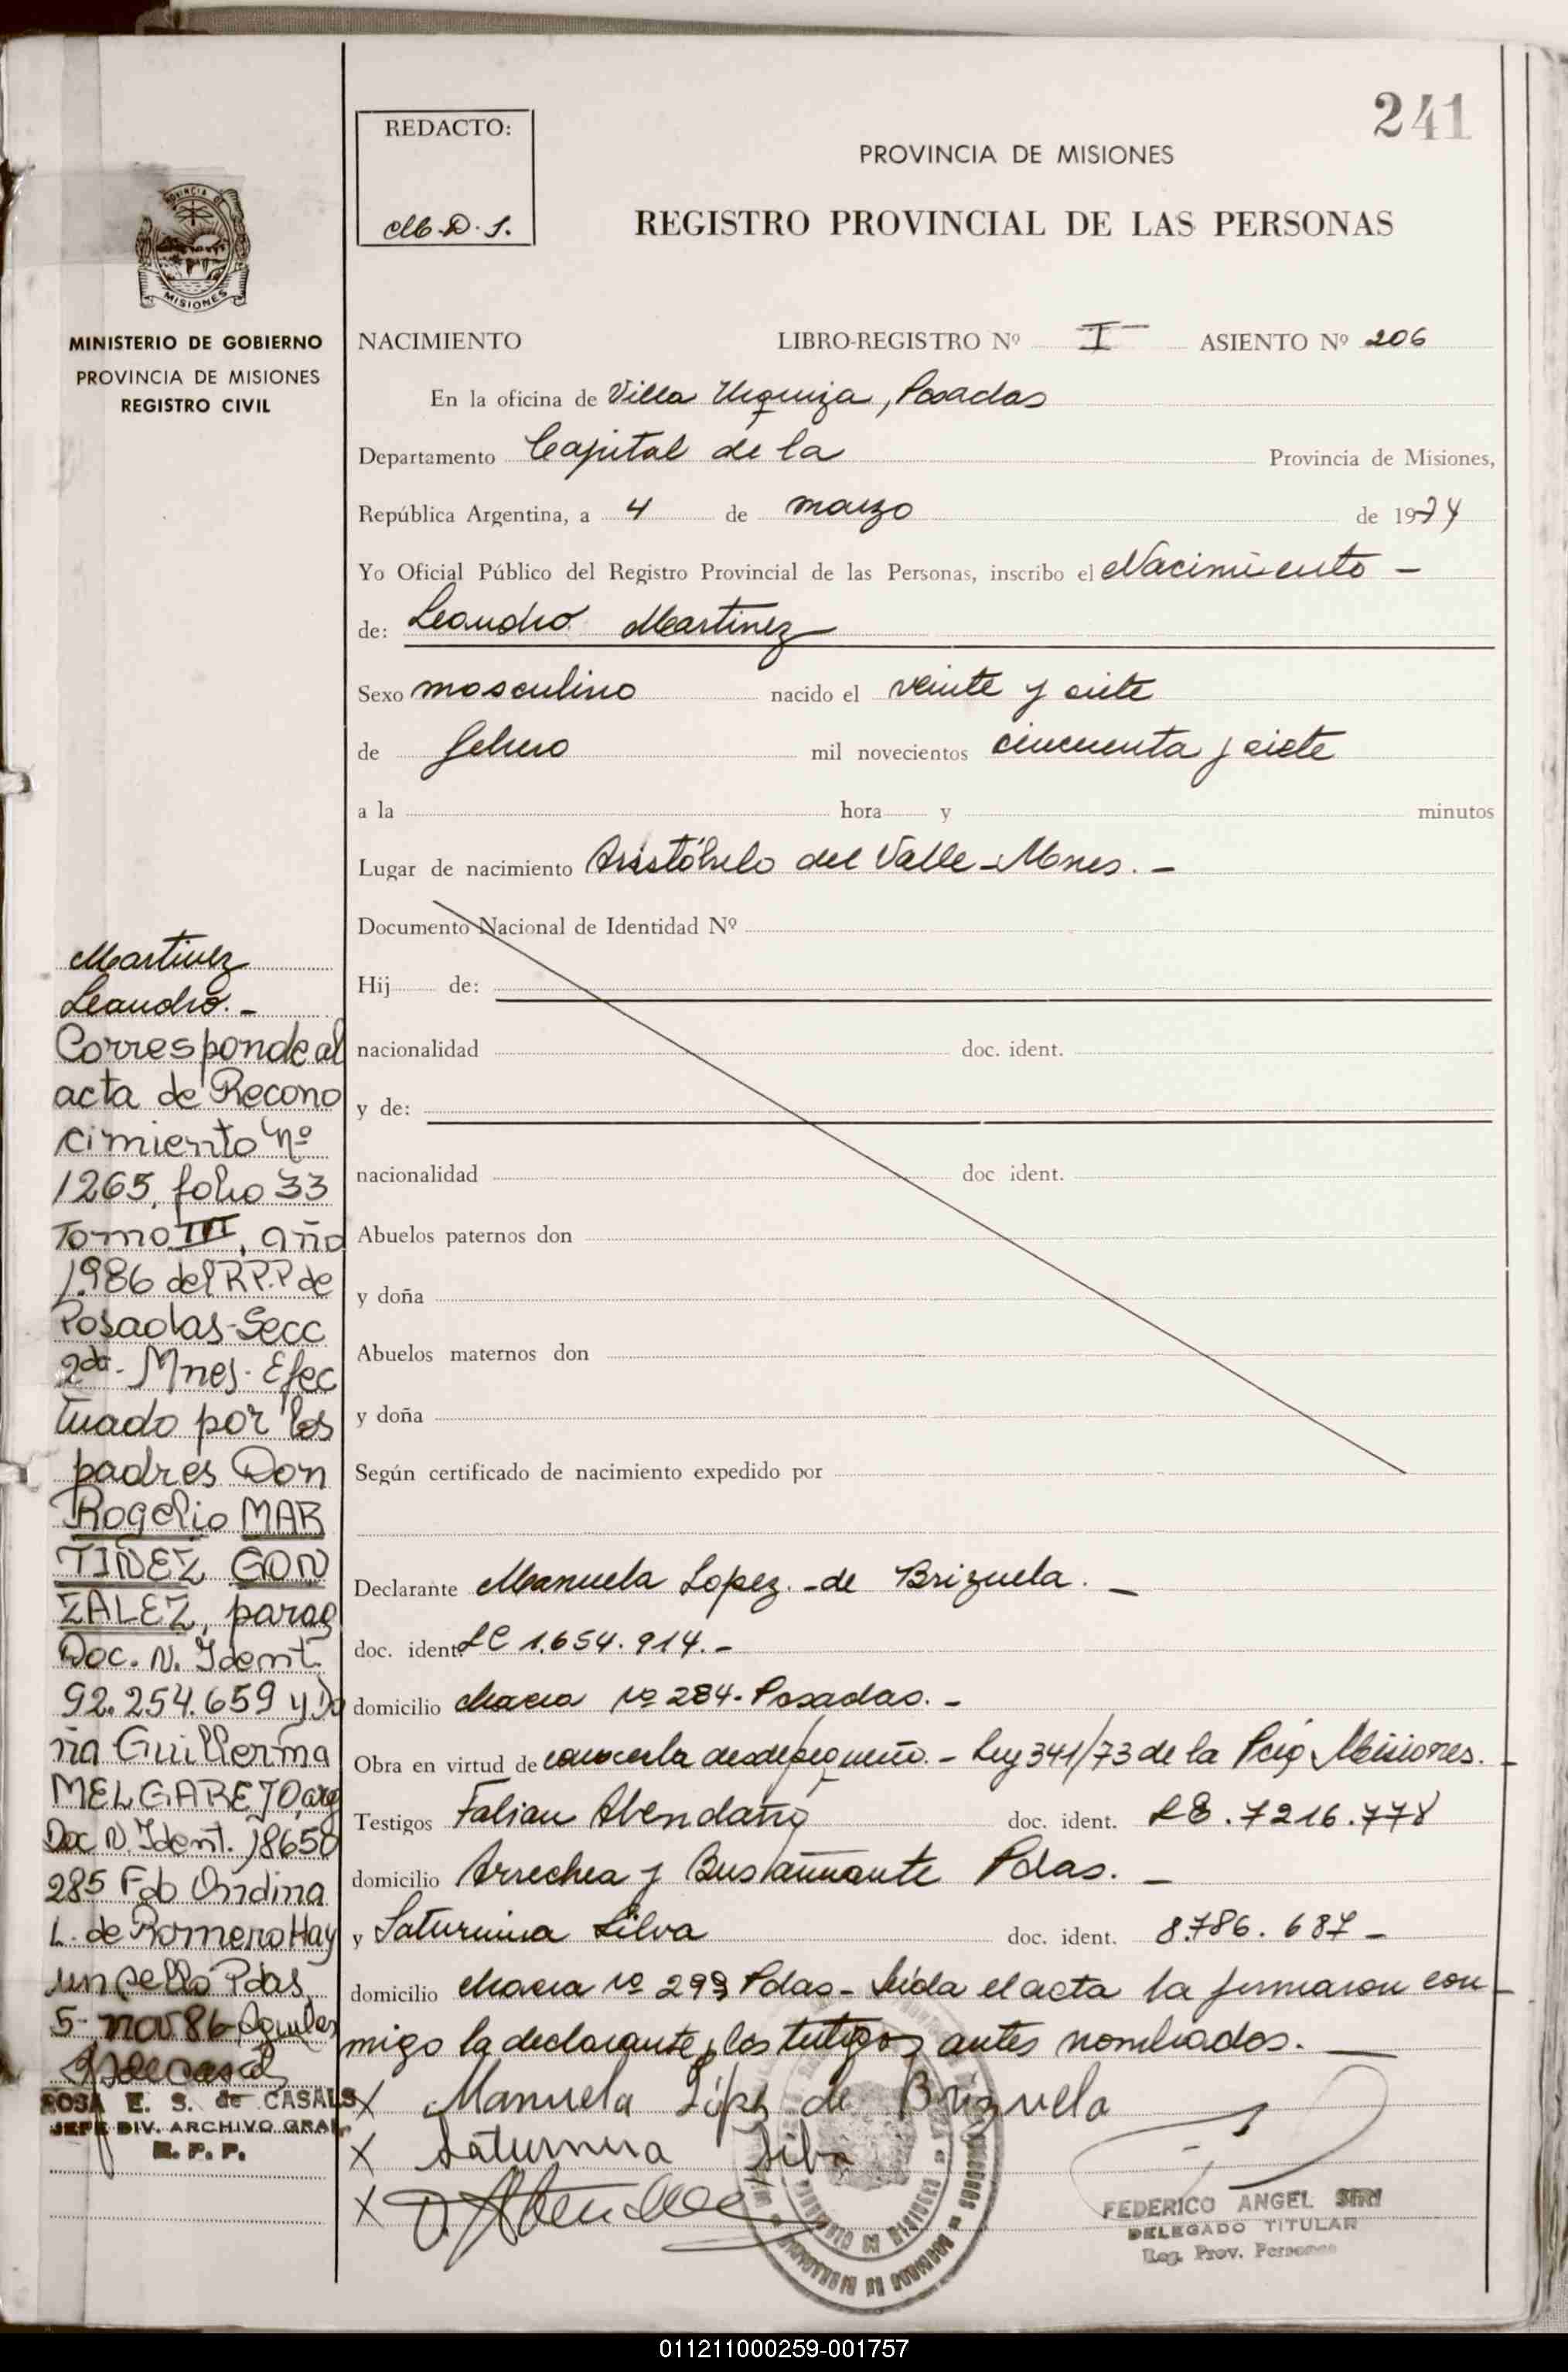 241
REDACTO:
M.D.S.
PROVINCIA DE MISIONES
REGISTRO PROVINCIAL DE LAS PERSONAS
PROVINCIA DE
MISIONES
MINISTERIO DE GOBIERNO
PROVINCIA DE MISIONES
REGISTRO CIVIL
NACIMIENTO LIBRO-REGISTRO Nº I ASIENTO Nº 206
En la oficina de Villa Urquiza, Posadas
Departamento Capital de la Provincia de Misiones,
República Argentina, a 4 de marzo de 1974
Yo Oficial Público del Registro Provincial de las Personas, inscribo el Nacimiento -
de: Leandro Martinez
Sexo masculino nacido el veinte y siete
de febrero mil novecientos cincuenta y siete
a la hora y minutos
Lugar de nacimiento Aristóbulo del Valle - Mnes. -
Documento Nacional de Identidad Nº
Hij de:
nacionalidad doc. ident.
y de:
nacionalidad doc ident.
Abuelos paternos don
y doña
Abuelos maternos don
y doña
Según certificado de nacimiento expedido por
Declarante Manuela Lopez. - de Brizuela. -
doc. ident. LC 1.654.914. -
domicilio chacra nº 284 - Posadas. -
Obra en virtud de conocerla desde pequeño. - Ley 341/73 de la Pcia Misiones. -
Testigos Fabian Abendaño doc. ident. LE. 7216.778
domicilio Arrechea y Bustamante Pdas. -
y Saturnina Silva doc. ident. 8.786.687 -
domicilio chacra nº 299 Pdas - Leida el acta la firmaron con -
migo la declarante y los testigos antes nombrados. -
X Manuela Lipez de Brizuela
X Saturnina Silva
X
FEDERICO ANGEL SIRI
DELEGADO TITULAR
Reg. Prov. Personas
Martinez
Leandro. -
Corresponde al
acta de Recono
cimiento nº
1265, folio 33
Tomo III, año
1986 del R.P.P de
Posadas - Secc
2da - Mnes. Efec
tuado por los
padres Don
Rogelio MAR
TINEZ GON
ZALEZ, parag
Doc. N. Ident.
92.254.659 y Do
ña Guillerma
MELGAREJO, arg
Doc N. Ident. 18650
285 Fdo Ondina
L. de Romero Hay
un sello Pdas,
5 - nov 86
ROSA E. S. de CASALS
JEFE DIV. ARCHIVO GRAL
R. P. P.
011211000259-001757